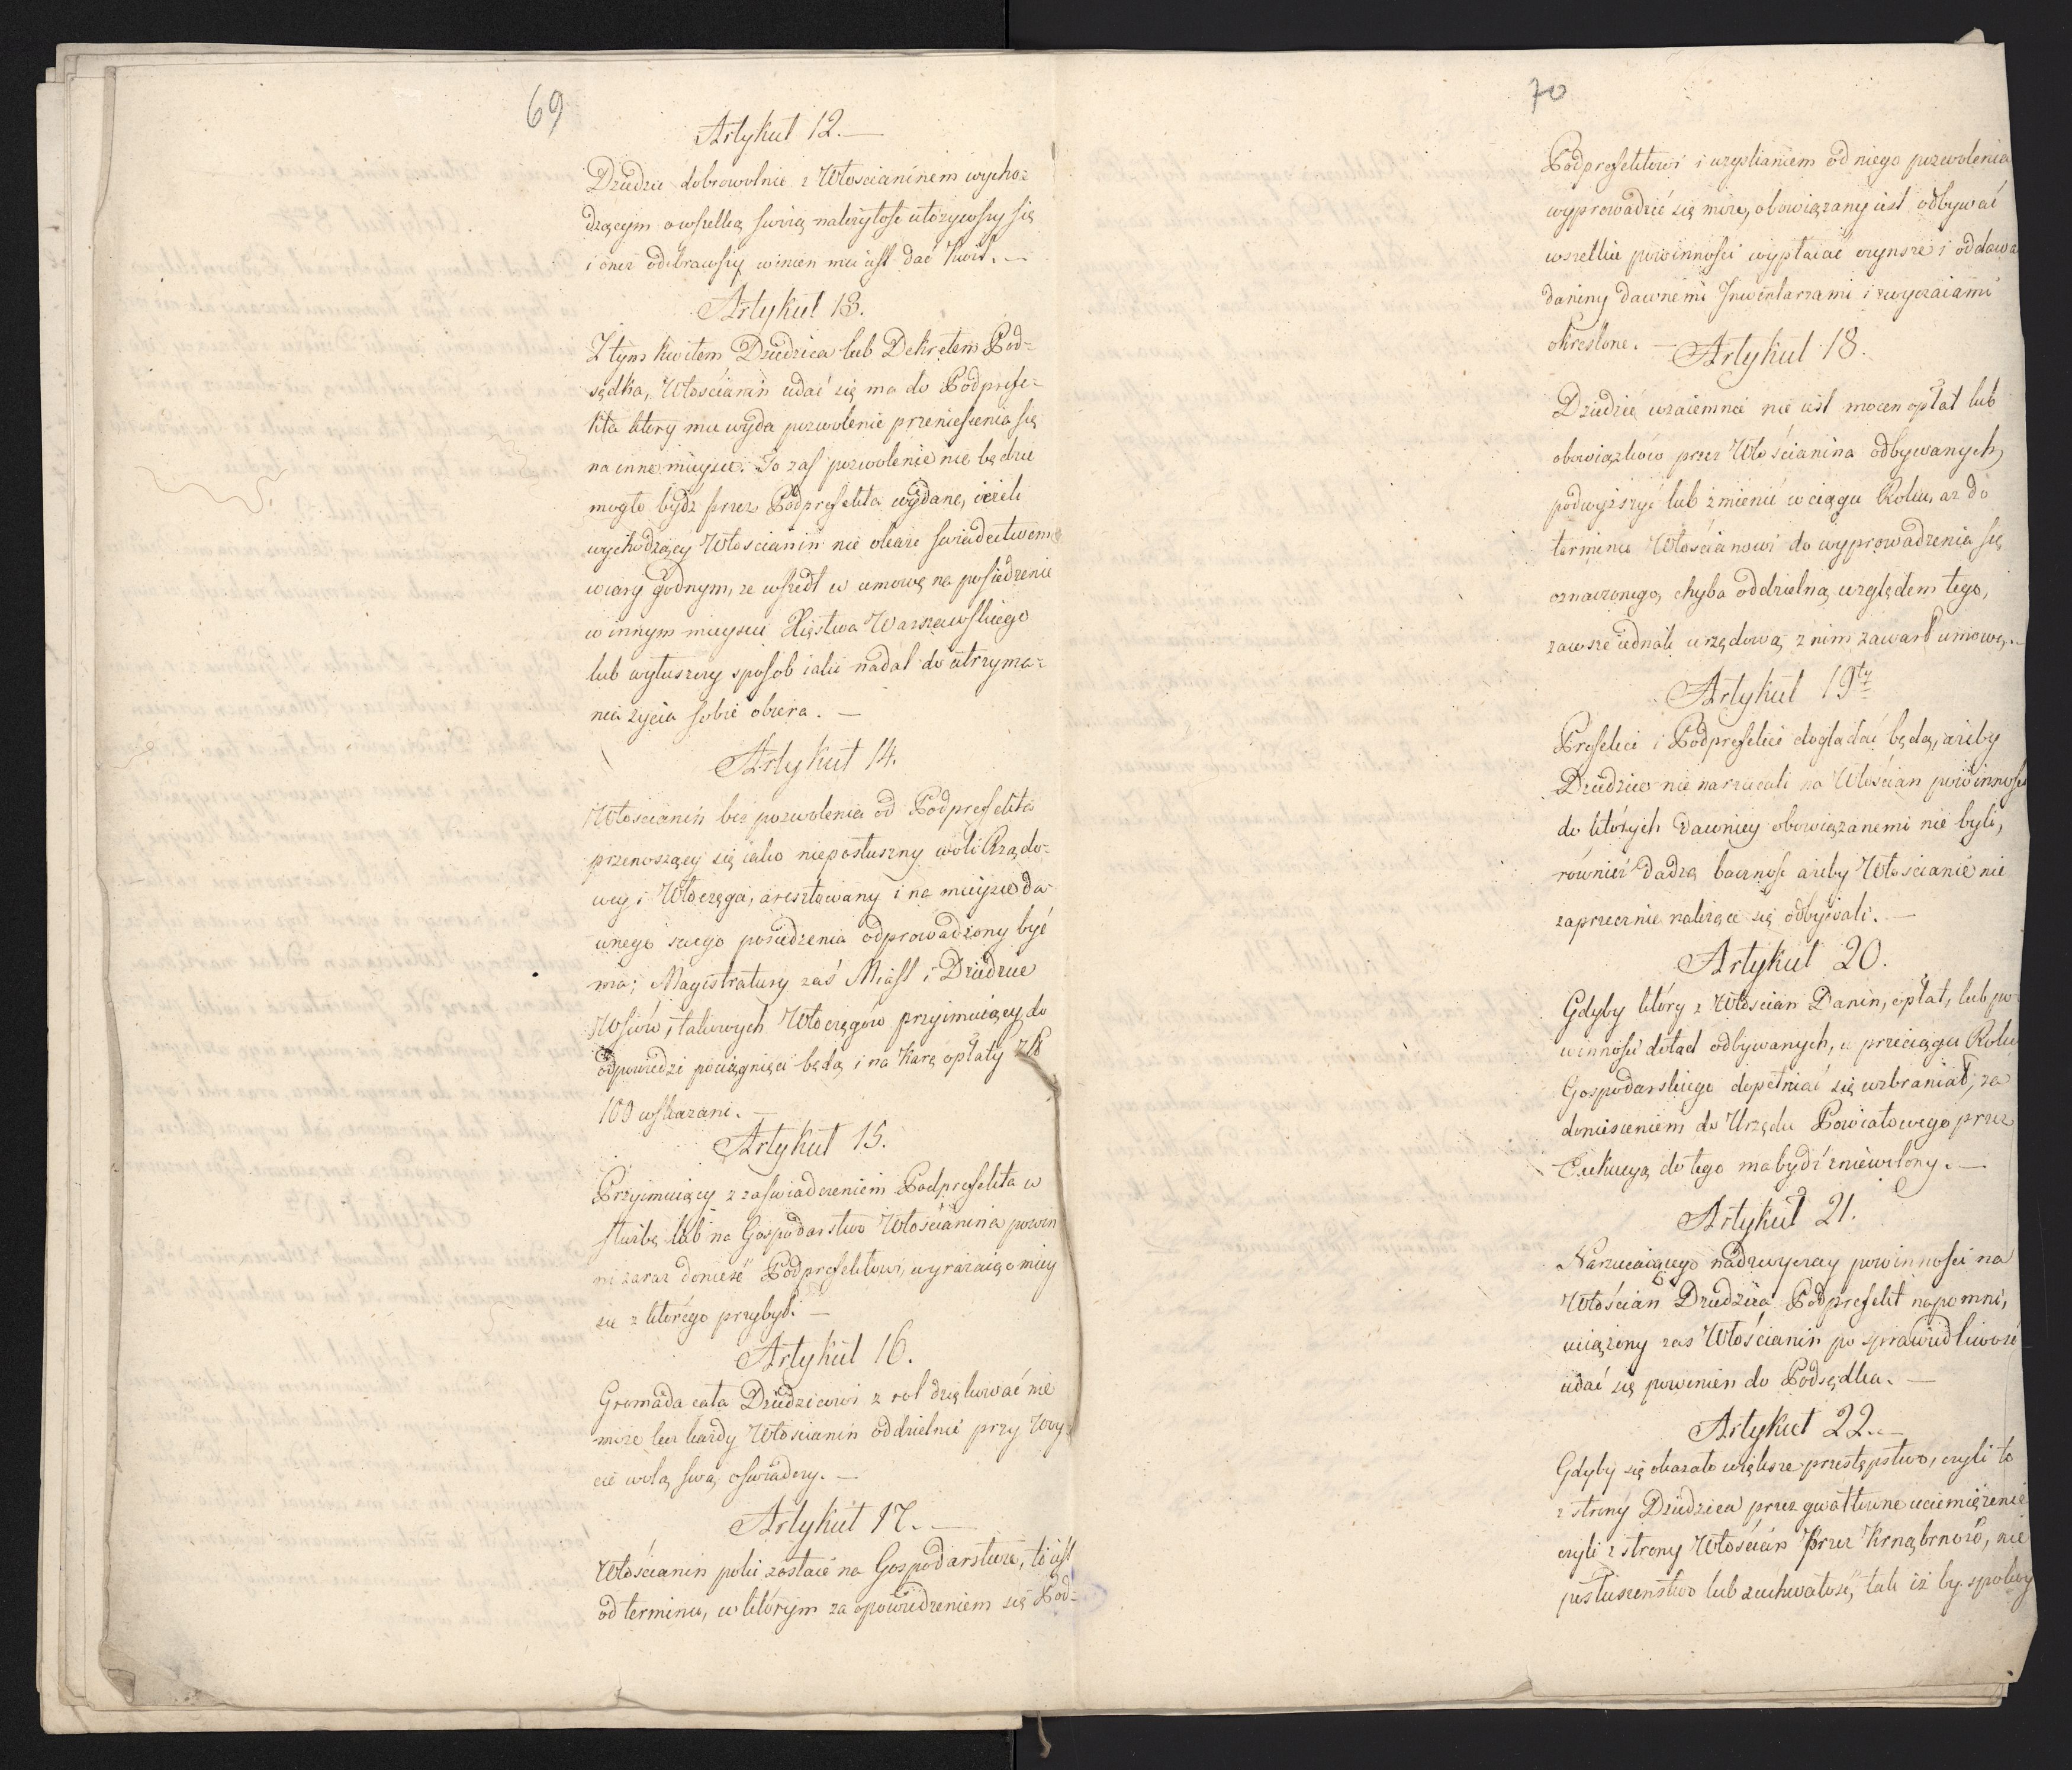 69
Artykuł 12.—
Dziedzic dobrowolnie z Włościaninem wycho=
dzącym o wszelką swoią należytość ułożywszy się
i onez odebrawszy winien mu iest dać Kwit.—
Artykuł 13.
Z tym kwitem Dziedzica lub Dekretem Pod=
sędka, Włościanin udać się ma do Podprefe=
kta który mu wyda pozwolenie przeniesienia się
na inne mieysce. To zaś pozwolenie nie będzie
mogło bydź przez Podprefekta wydane, ieżeli
wychodzący Włościanin nie okaże świadectwem
wiary godnym, że wszedł w umowę na posiedzenie
w innym mieyscu Xięstwa Warszawskiego
lub wyłuszczy sposób iaki nadal do utrzyma=
nia życia sobie obiera.—
Artykuł 14.
Włościanin bez pozwolenia od Podprefekta
przenoszący się iako nieposłuszny woli Rządo=
wey i Włóczęga, aresztowany i na mieysce da=
wnego swego posiedzenia odprowadzony być
ma; Magistratury zaś Miast i Dziedzice
Wsiów, takowych Włóczęgów przyimuiący, do
odpowiedzi pociągnięci będą i na Karę opłaty Złł
100 wskazani.—
Artykuł 15.
Przyimuiący z zaświadczeniem Podprefekta w
służbę lub na Gospodarstwo Włościanina powin
ni zaraz donieść Podprefektowi, wyrażaiąc miey
sce z którego przybyli—
Artykuł 16.
Gromada cała Dziedzicowi z rol dziękować nie
może lecz każdy Włościanin oddzielnie przy Woy=
cie wolą swą oświadczy.—
Artykuł 17.—
Włościanin póki zostaie na Gospodarstwie, to iest
od terminu, w którym za opowiedzeniem się Pod=
70
Podprefektowi i uzyskaniem od niego pozwolenia
wyprowadzić się może, obowiązany iest odbywać
wszelkie powinności wypłacać czynsze i oddawa
daniny dawnemi Inwentarzami i zwyczaiami
określone.—
Artykuł 18.
Dziedzic wzaiemnie nie iest mocen opłat lub
obowiązków przez Włościanina odbywanych,
podwyższyć lub zmienić w ciągu Roku, aż do
terminu Włościanowi do wyprowadzenia się
oznaczonego, chyba oddzielną względem tego,
zawsze iednak urzędową z nim zawarł umowę.—
Artykuł 19ty
Prefekci i Podprefekci doglądać będą, ażeby
Dziedzice nie narzucali na Włościan powinności
do których dawniey obowiązanemi nie byli,
również dadzą baczność ażeby Włościanie nie
zaprzecznie należące się odbywali.—
Artykuł 20.
Gdyby który z Włościan Danin, opłat, lub po=
winności dotąd odbywanych, w przeciągu Roku
Gospodarskiego dopełniać się wzbraniał, za
doniesieniem do Urzędu Powiatowego przez
Exekucyą do tego ma bydź zniewolony.—
Artykuł 21.
Narzucaiącego nadzwyczay powinności na
Włościan Dziedzica Podprefekt napomni,
uciążony zaś Włościanin po sprawiedliwość
udać się powinien do Podsędka.—
Artykuł 22.—
Gdyby się okazało większe przestępstwo, czyli to
z strony Dziedzica przez gwałtowne uciemiężenie
czyli z strony Włościan przez Krnąbrność, nie
posłuszeństwo lub zuchwałość, tak iż by spokoy